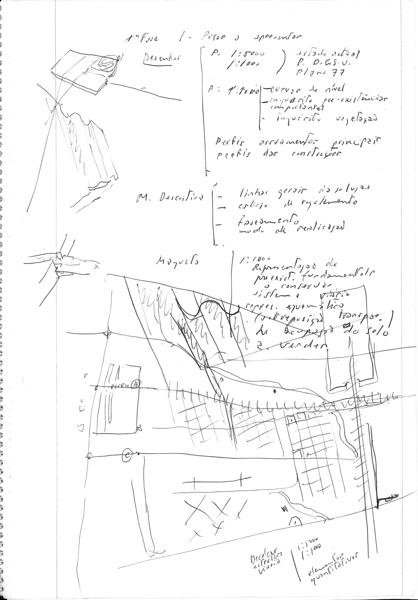 1ª Fase 1 - Peças a apresentar
Desenhos
P. 1:5000
1:1000
estado actual
P. D.G.S.U.
Plano 77
P. 1:1000
curvas de nível
inquérito pré-existências
importantes
inquérito vegetação
Perfis arruamentos principais
perfis das construções
M. Descritiva
linhas gerais da solução
esboço de regulamento
faseamento
modo de realização
Maqueta
1:1000
Representação de
preexist. fundamentais
a conservar
sistema viário
repres. esquemática
(sobreposição transpar.)
da ocupação do solo
a. verdes
viária
1:1000
elementos
quantitativos